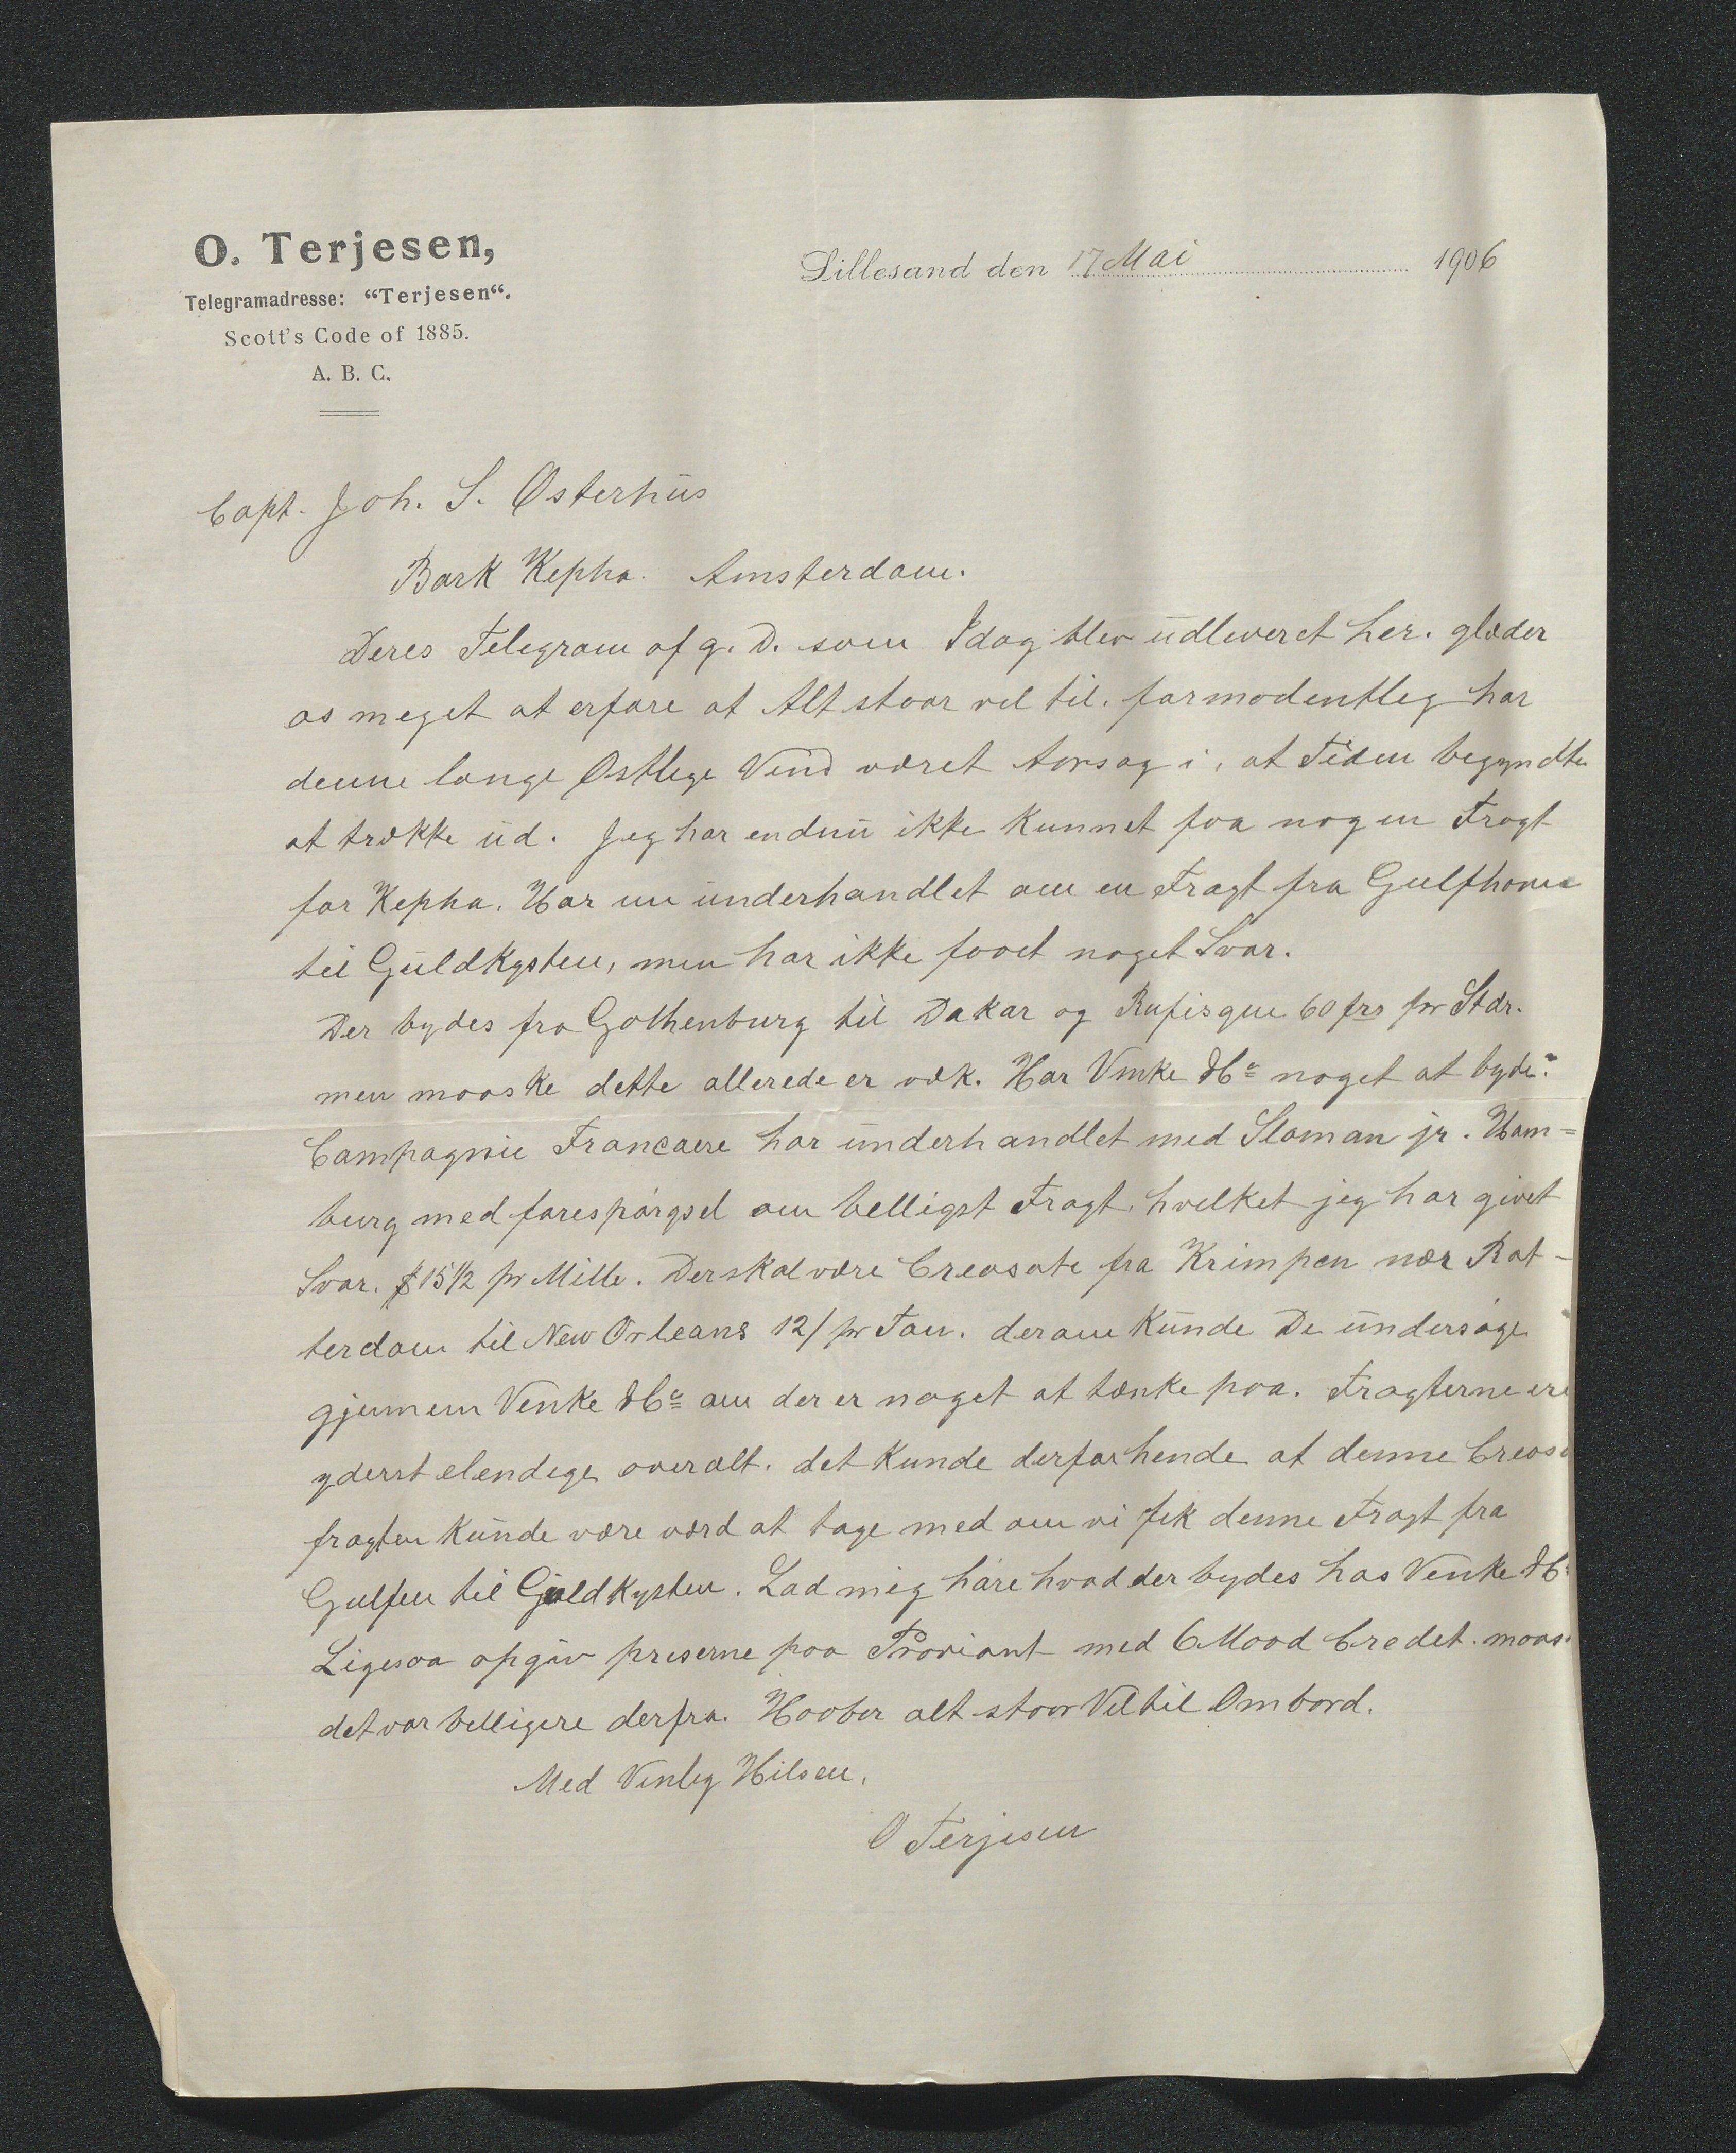 O. Terjesen,
Telegramadresse: “Terjesen“.
Scott's Code of 1885.
A. B. C.
Lillesand den 17 Mai 1906
Capt. Joh. S. Østerhus
Bark Kepha. Amsterdam.
Deres Telegram af g. D. som Idag blev udleveret her. glæder
os meget at erfare at Alt staar vel til. formodentleg har
denne lange Østlige Vind været Aarsag i, at Tiden begyndte
at trække ud. Jeg har endnu ikke kunnet faa nogen Fragt
for Kepha. Har nu underhandlet om en Fragt fra Gulfhavne
til Guldkysten, men har ikke faaet noget Svar.
Der bydes fra Gothenburg til Dakar og Rufisque 60 frs pr Stdr.
men maaske dette allerede er væk. Har Vinke & Co noget at byde?
Campagnie Francaere har underhandlet med Sloman jr. Ham=
burg med forespørgsel om belligst Fragt, hvilket jeg har givet
Svar. $ 15 1/2 pr Mille. Der skal være Creosote fra Krimpen nær Rot-
terdam til New Orleans 12/ pr Ton. derom kunde De undersøge
gjennem Venke & Co om der er noget at tænke paa. Fragterne ere
yderst elendige overalt. det kunde derfor hende at denne Creoso
fragten kunde være værd at tage med om vi fik denne Fragt fra
Gulfen til Guldkysten. Lad mig høre hvad der bydes hos Venke & Co
Ligesaa opgiv priserne paa Proviant med 6 Maad Credet. maas
det var belligere derfra. Haaber alt staar Vel til Ombord.
Med Venlig Hilsen,
O Terjesen